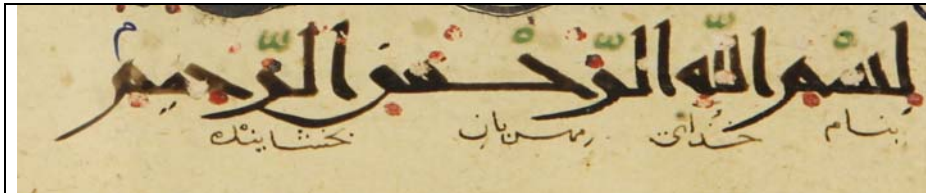 بسم الله الرحمن الرحيم م
بنام خدای مهربان بخشاینده